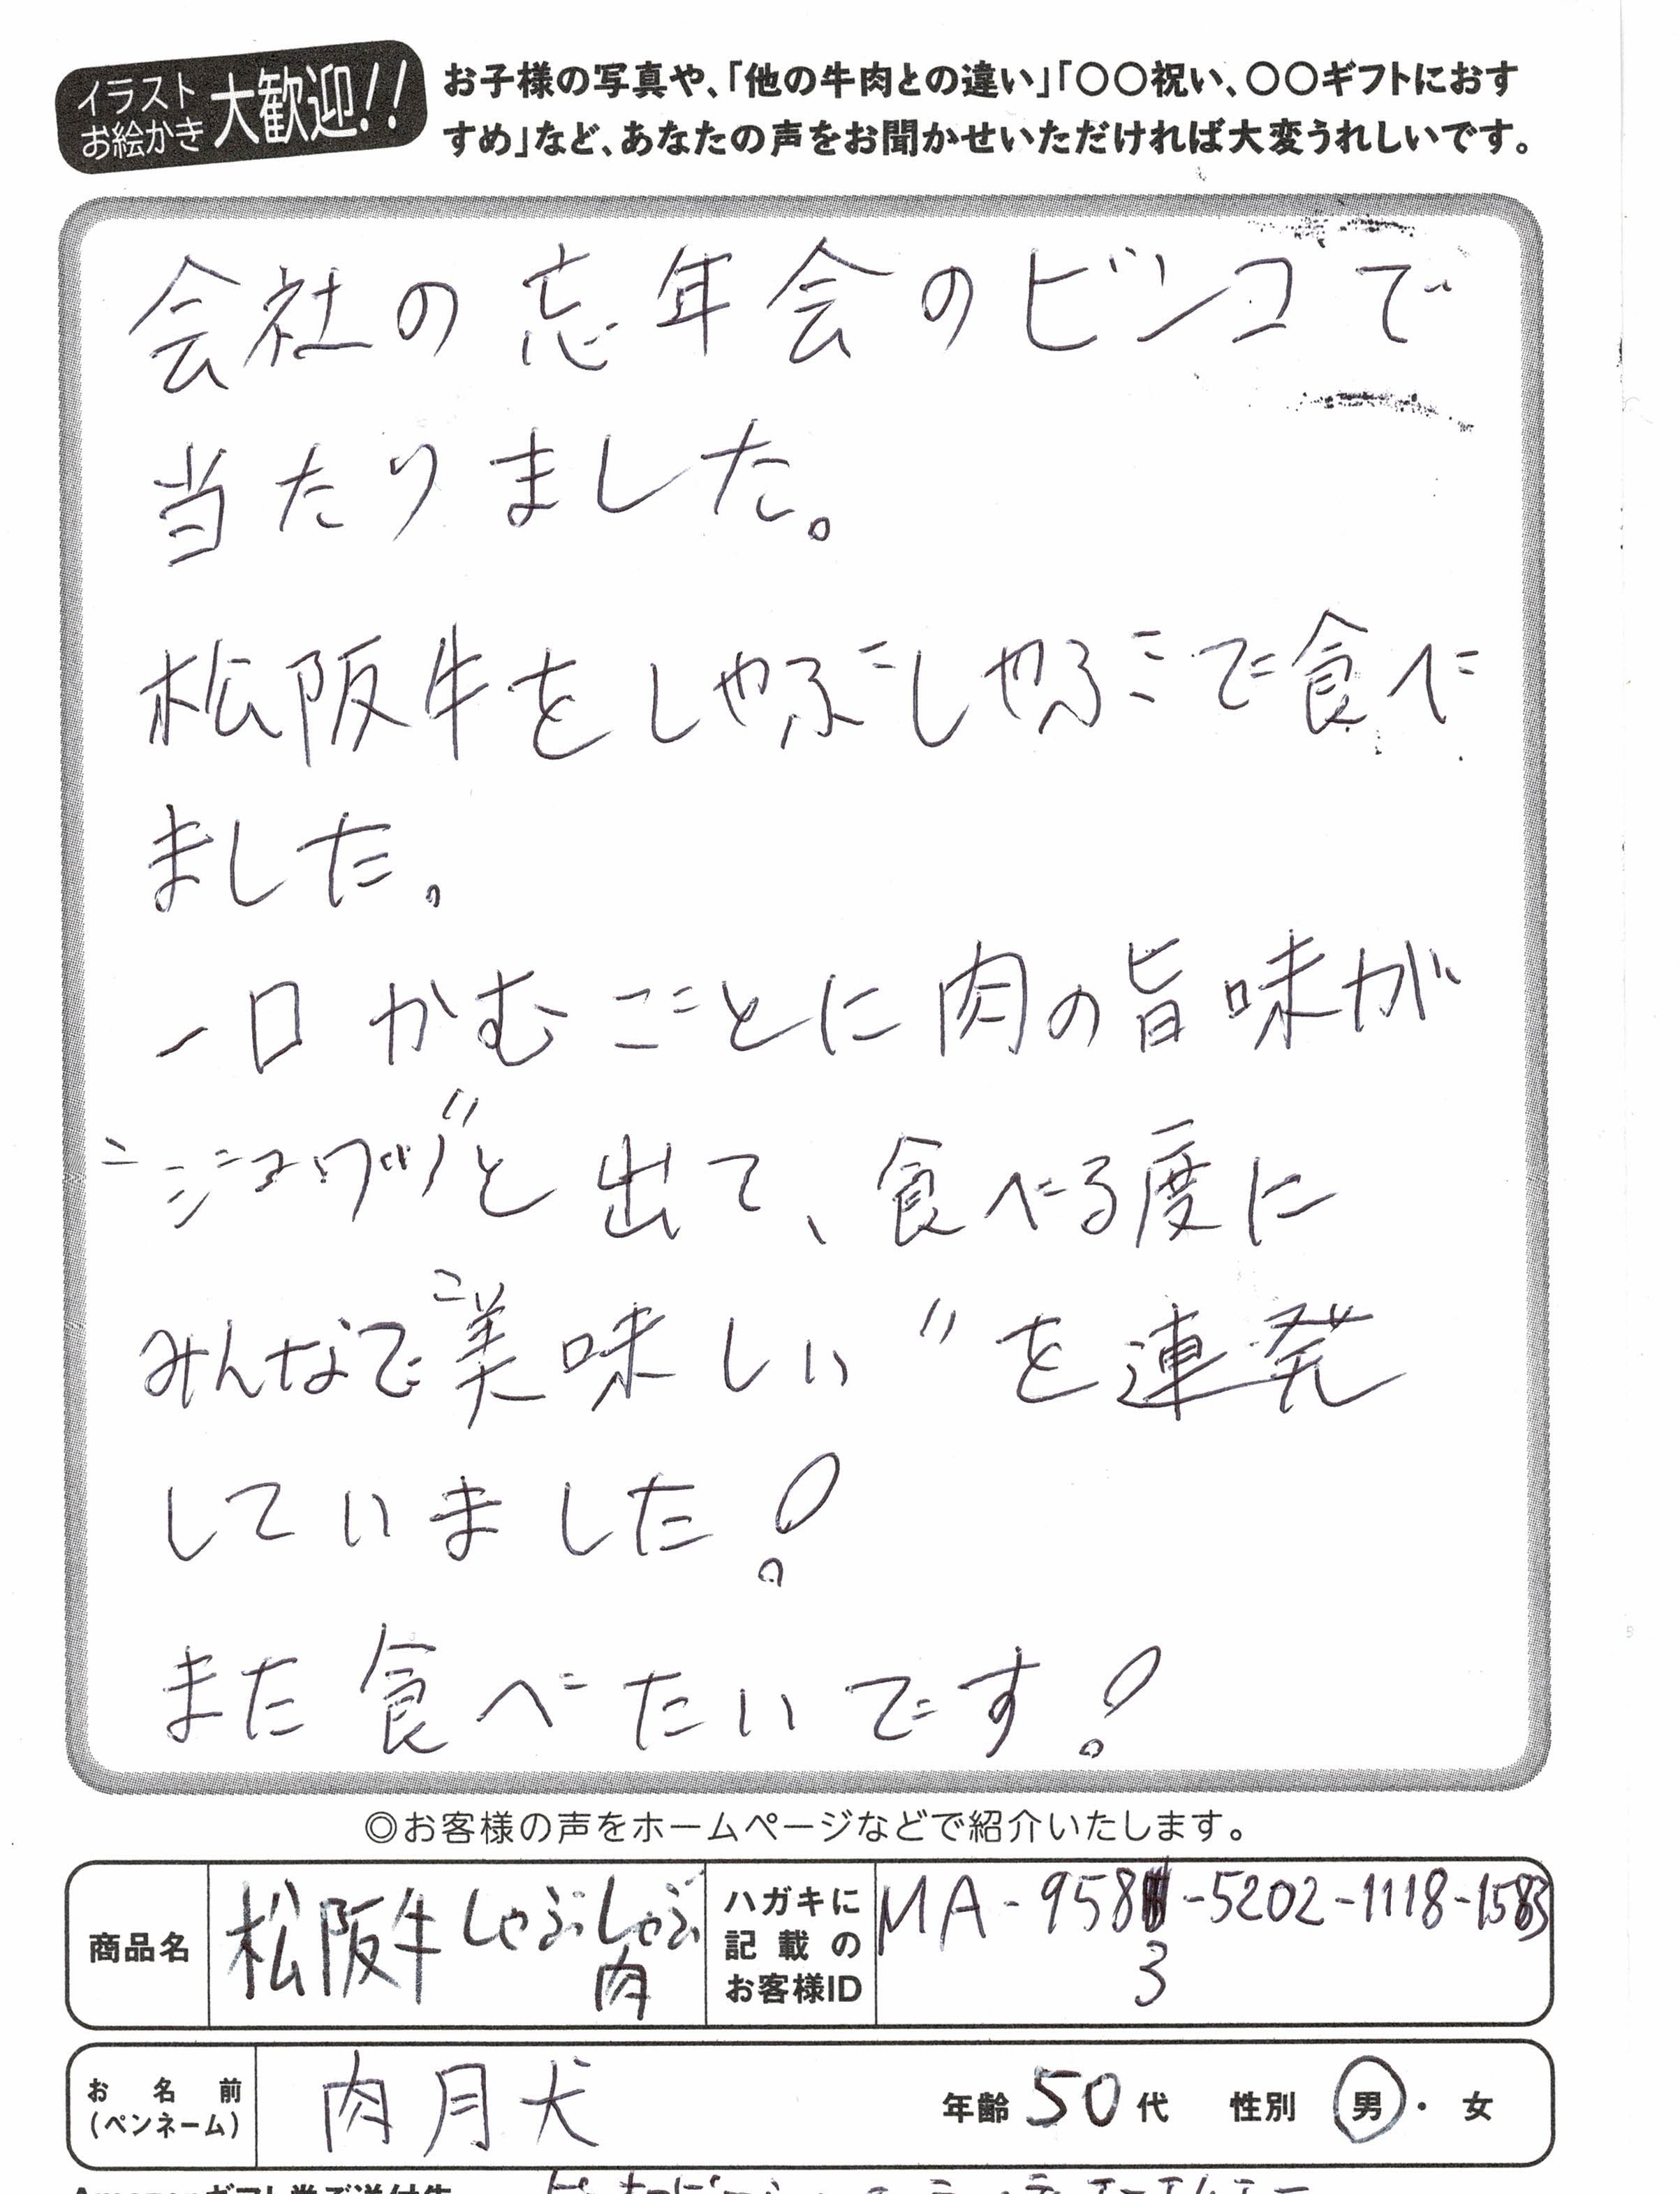 イラスト
お絵かき
大歓迎!!
お子様の写真や、「他の牛肉との違い」「〇〇祝い、〇〇ギフトにおす
すめ」など、あなたの声をお聞かせいただければ大変うれしいです。
会社の忘年会のビンゴで
当たりました。
松阪牛をしゃぶしゃぶで食べ
ました。
一口かむごとに肉の旨味が
〝ジュワッ〟と出て、食べる度に
みんなで〝美味しい〟を連発
していました!
また食べたいです!
◎お客様の声をホームページなどで紹介いたします。
商品名
松阪牛しゃぶしゃぶ
肉
ハガキに
記載の
お客様ID
MA-9583-5202-1118-1583
お名前
(ペンネーム)
肉月犬
年齢 50代 性別 男・女